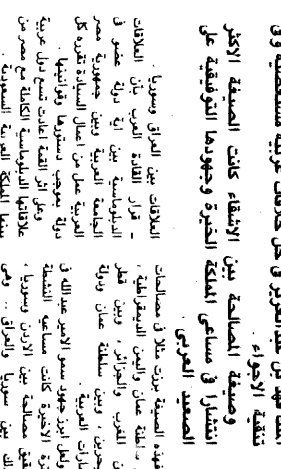 فهد بن عبدالعزيز في حل خلافات عربية مستعصية وفي
تنقية الاجواء .
وصيغة المصالحة بين الاشقاء كانت الصيغة الاكثر
انتشارا في مساعي المملكة الخيرة وجهودها التوفيقية على
الصعيد العربي .
فهذه الصيغة برزت مثلا في مصالحات
سلطنة عمان واليمن الديمقراطية ،
المغرب والجزائر ، وبين قطر
بحرين ، وبين سلطنة عمان ودولة
مارات العربية .
ولعل ابرز جهود سمو الامير عبدالله في
ترة الاخيرة كانت مساعيه النشطة
قيق مصالحة بين الاردن وسوريا ،
لك بين سوريا والعراق .. وهي
العلاقات بين العراق وسوريا .
- قرار القادة العرب بان العلاقات
الدبلوماسية بين اية دولة عضو في
الجامعة العربية وبين جمهورية مصر
العربية عمل من اعمال السيادة تقرره كل
دولة بموجب دستورها وقوانينها .
وعلى اثر القمة اعادت تسع دول عربية
علاقاتها الدبلوماسية الكاملة مع مصر من
بينها المملكة العربية السعودية .